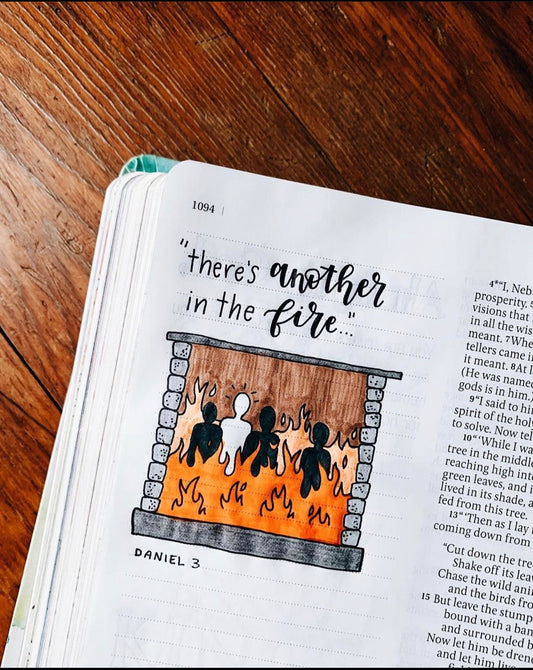 1094
"there's another
in the fire..."
DANIEL 3
4*"I, Neb
prosperity. 5
visions that
in all the wis
meant. 7Whe
tellers came i
it meant. 8At l
(He was named
gods is in him.)
9"I said to hi
spirit of the holy
to solve. Now tel
10"'While I wa
tree in the middle
reaching high into
green leaves, and i
lived in its shade, a
fed from this tree.
13"'Then as I lay
coming down from
"Cut down the tree
Shake off its leav
Chase the wild anim
and the birds fro
15 But leave the stump
bound with a ban
and surrounded b
Now let him be drenc
and let him live